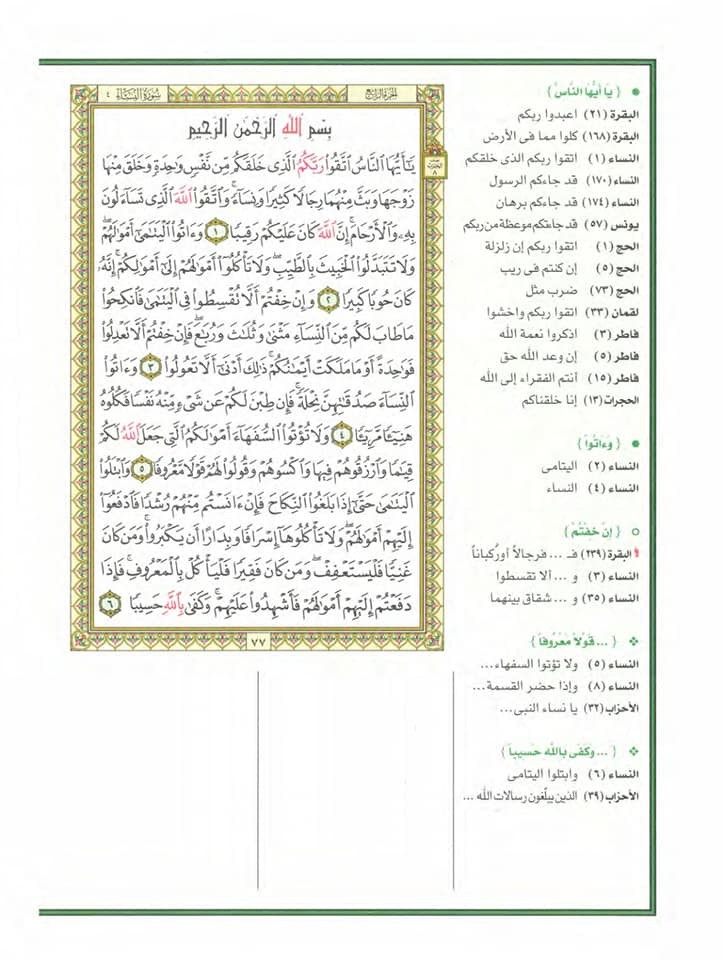 الجزء الرابع
سورة النساء ٤
بِسْمِ اللَّهِ الرَّحْمَٰنِ الرَّحِيمِ
يَا أَيُّهَا النَّاسُ اتَّقُوا رَبَّكُمُ الَّذِي خَلَقَكُم مِّن نَّفْسٍ وَاحِدَةٍ وَخَلَقَ مِنْهَا
زَوْجَهَا وَبَثَّ مِنْهُمَا رِجَالًا كَثِيرًا وَنِسَاءً ۚ وَاتَّقُوا اللَّهَ الَّذِي تَسَاءَلُونَ
بِهِ وَالْأَرْحَامَ ۚ إِنَّ اللَّهَ كَانَ عَلَيْكُمْ رَقِيبًا ١ وَآتُوا الْيَتَامَىٰ أَمْوَالَهُمْ ۖ
وَلَا تَتَبَدَّلُوا الْخَبِيثَ بِالطَّيِّبِ ۖ وَلَا تَأْكُلُوا أَمْوَالَهُمْ إِلَىٰ أَمْوَالِكُمْ ۚ إِنَّهُ
كَانَ حُوبًا كَبِيرًا ٢ وَإِنْ خِفْتُمْ أَلَّا تُقْسِطُوا فِي الْيَتَامَىٰ فَانكِحُوا
مَا طَابَ لَكُم مِّنَ النِّسَاءِ مَثْنَىٰ وَثُلَاثَ وَرُبَاعَ ۖ فَإِنْ خِفْتُمْ أَلَّا تَعْدِلُوا
فَوَاحِدَةً أَوْ مَا مَلَكَتْ أَيْمَانُكُمْ ۚ ذَٰلِكَ أَدْنَىٰ أَلَّا تَعُولُوا ٣ وَآتُوا
النِّسَاءَ صَدُقَاتِهِنَّ نِحْلَةً ۚ فَإِن طِبْنَ لَكُمْ عَن شَيْءٍ مِّنْهُ نَفْسًا فَكُلُوهُ
هَنِيئًا مَّرِيئًا ٤ وَلَا تُؤْتُوا السُّفَهَاءَ أَمْوَالَكُمُ الَّتِي جَعَلَ اللَّهُ لَكُمْ
قِيَامًا وَارْزُقُوهُمْ فِيهَا وَاكْسُوهُمْ وَقُولُوا لَهُمْ قَوْلًا مَّعْرُوفًا ٥ وَابْتَلُوا
الْيَتَامَىٰ حَتَّىٰ إِذَا بَلَغُوا النِّكَاحَ فَإِنْ آنَسْتُم مِّنْهُمْ رُشْدًا فَادْفَعُوا
إِلَيْهِمْ أَمْوَالَهُمْ ۖ وَلَا تَأْكُلُوهَا إِسْرَافًا وَبِدَارًا أَن يَكْبَرُوا ۚ وَمَن كَانَ
غَنِيًّا فَلْيَسْتَعْفِفْ ۖ وَمَن كَانَ فَقِيرًا فَلْيَأْكُلْ بِالْمَعْرُوفِ ۚ فَإِذَا
دَفَعْتُمْ إِلَيْهِمْ أَمْوَالَهُمْ فَأَشْهِدُوا عَلَيْهِمْ ۚ وَكَفَىٰ بِاللَّهِ حَسِيبًا ٦
٧٧
{ يَا أَيُّهَا النَّاسُ }
البقرة (٢١) اعبدوا ربكم
البقرة (١٦٨) كلوا مما فى الأرض
النساء (١) اتقوا ربكم الذى خلقكم
النساء (١٧٠) قد جاءكم الرسول
النساء (١٧٤) قد جاءكم برهان
يونس (٥٧) قد جاءتكم موعظة من ربكم
الحج (١) اتقوا ربكم إن زلزلة
الحج (٥) إن كنتم فى ريب
الحج (٧٣) ضرب مثل
لقمان (٣٣) اتقوا ربكم واخشوا
فاطر (٣) اذكروا نعمة الله
فاطر (٥) إن وعد الله حق
فاطر (١٥) أنتم الفقراء إلى الله
الحجرات (١٣) إنا خلقناكم
{ وَءَاتُوا }
النساء (٢) اليتامى
النساء (٤) النساء
{ إِنْ خِفْتُمْ }
البقرة (٢٣٩) فـ ... فرجالاً أو ركباناً
النساء (٣) و ... ألا تقسطوا
النساء (٣٥) و ... شقاق بينهما
{ ... قَوْلاً مَعْرُوفاً }
النساء (٥) ولا تؤتوا السفهاء...
النساء (٨) وإذا حضر القسمة...
الأحزاب (٣٢) يا نساء النبى...
{ ... وَكَفَى بِاللَّهِ حَسِيباً }
النساء (٦) وابتلوا اليتامى
الأحزاب (٣٩) الذين يبلّغون رسالات الله ...